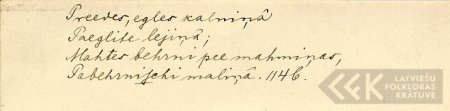 Preedes, egles kalniņâ
Paeglite lejiņâ;
Mahtes behrni pee mahmiņas,
Pabehrnischi maliņâ. 1146.
LATVIEŠU
FOLKLORAS
KRĀTUVE